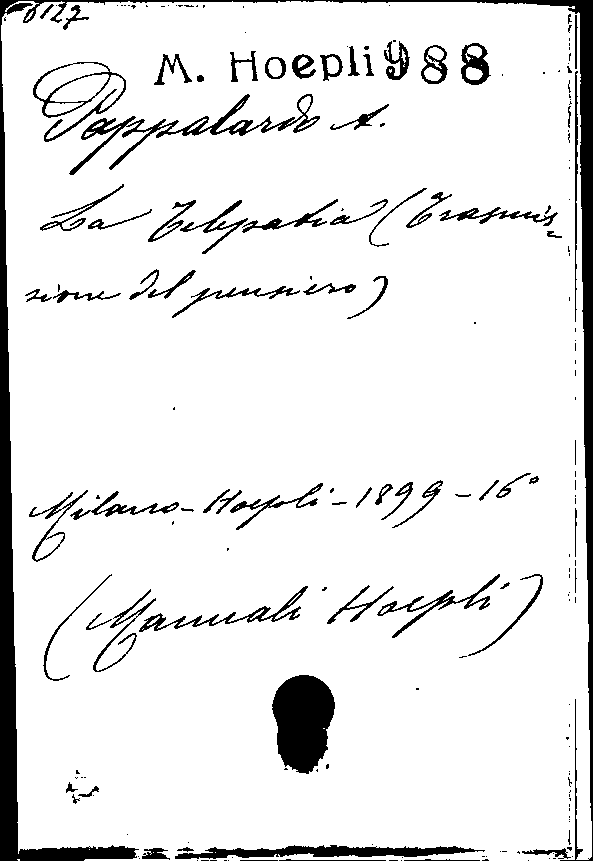 6127
M. Hoepli 988
Pappalardo A.
La Telepatia (Trasmis-
sione del pensiero)
Milano - Hoepli - 1899 - 16°
(Manuali Hoepli)